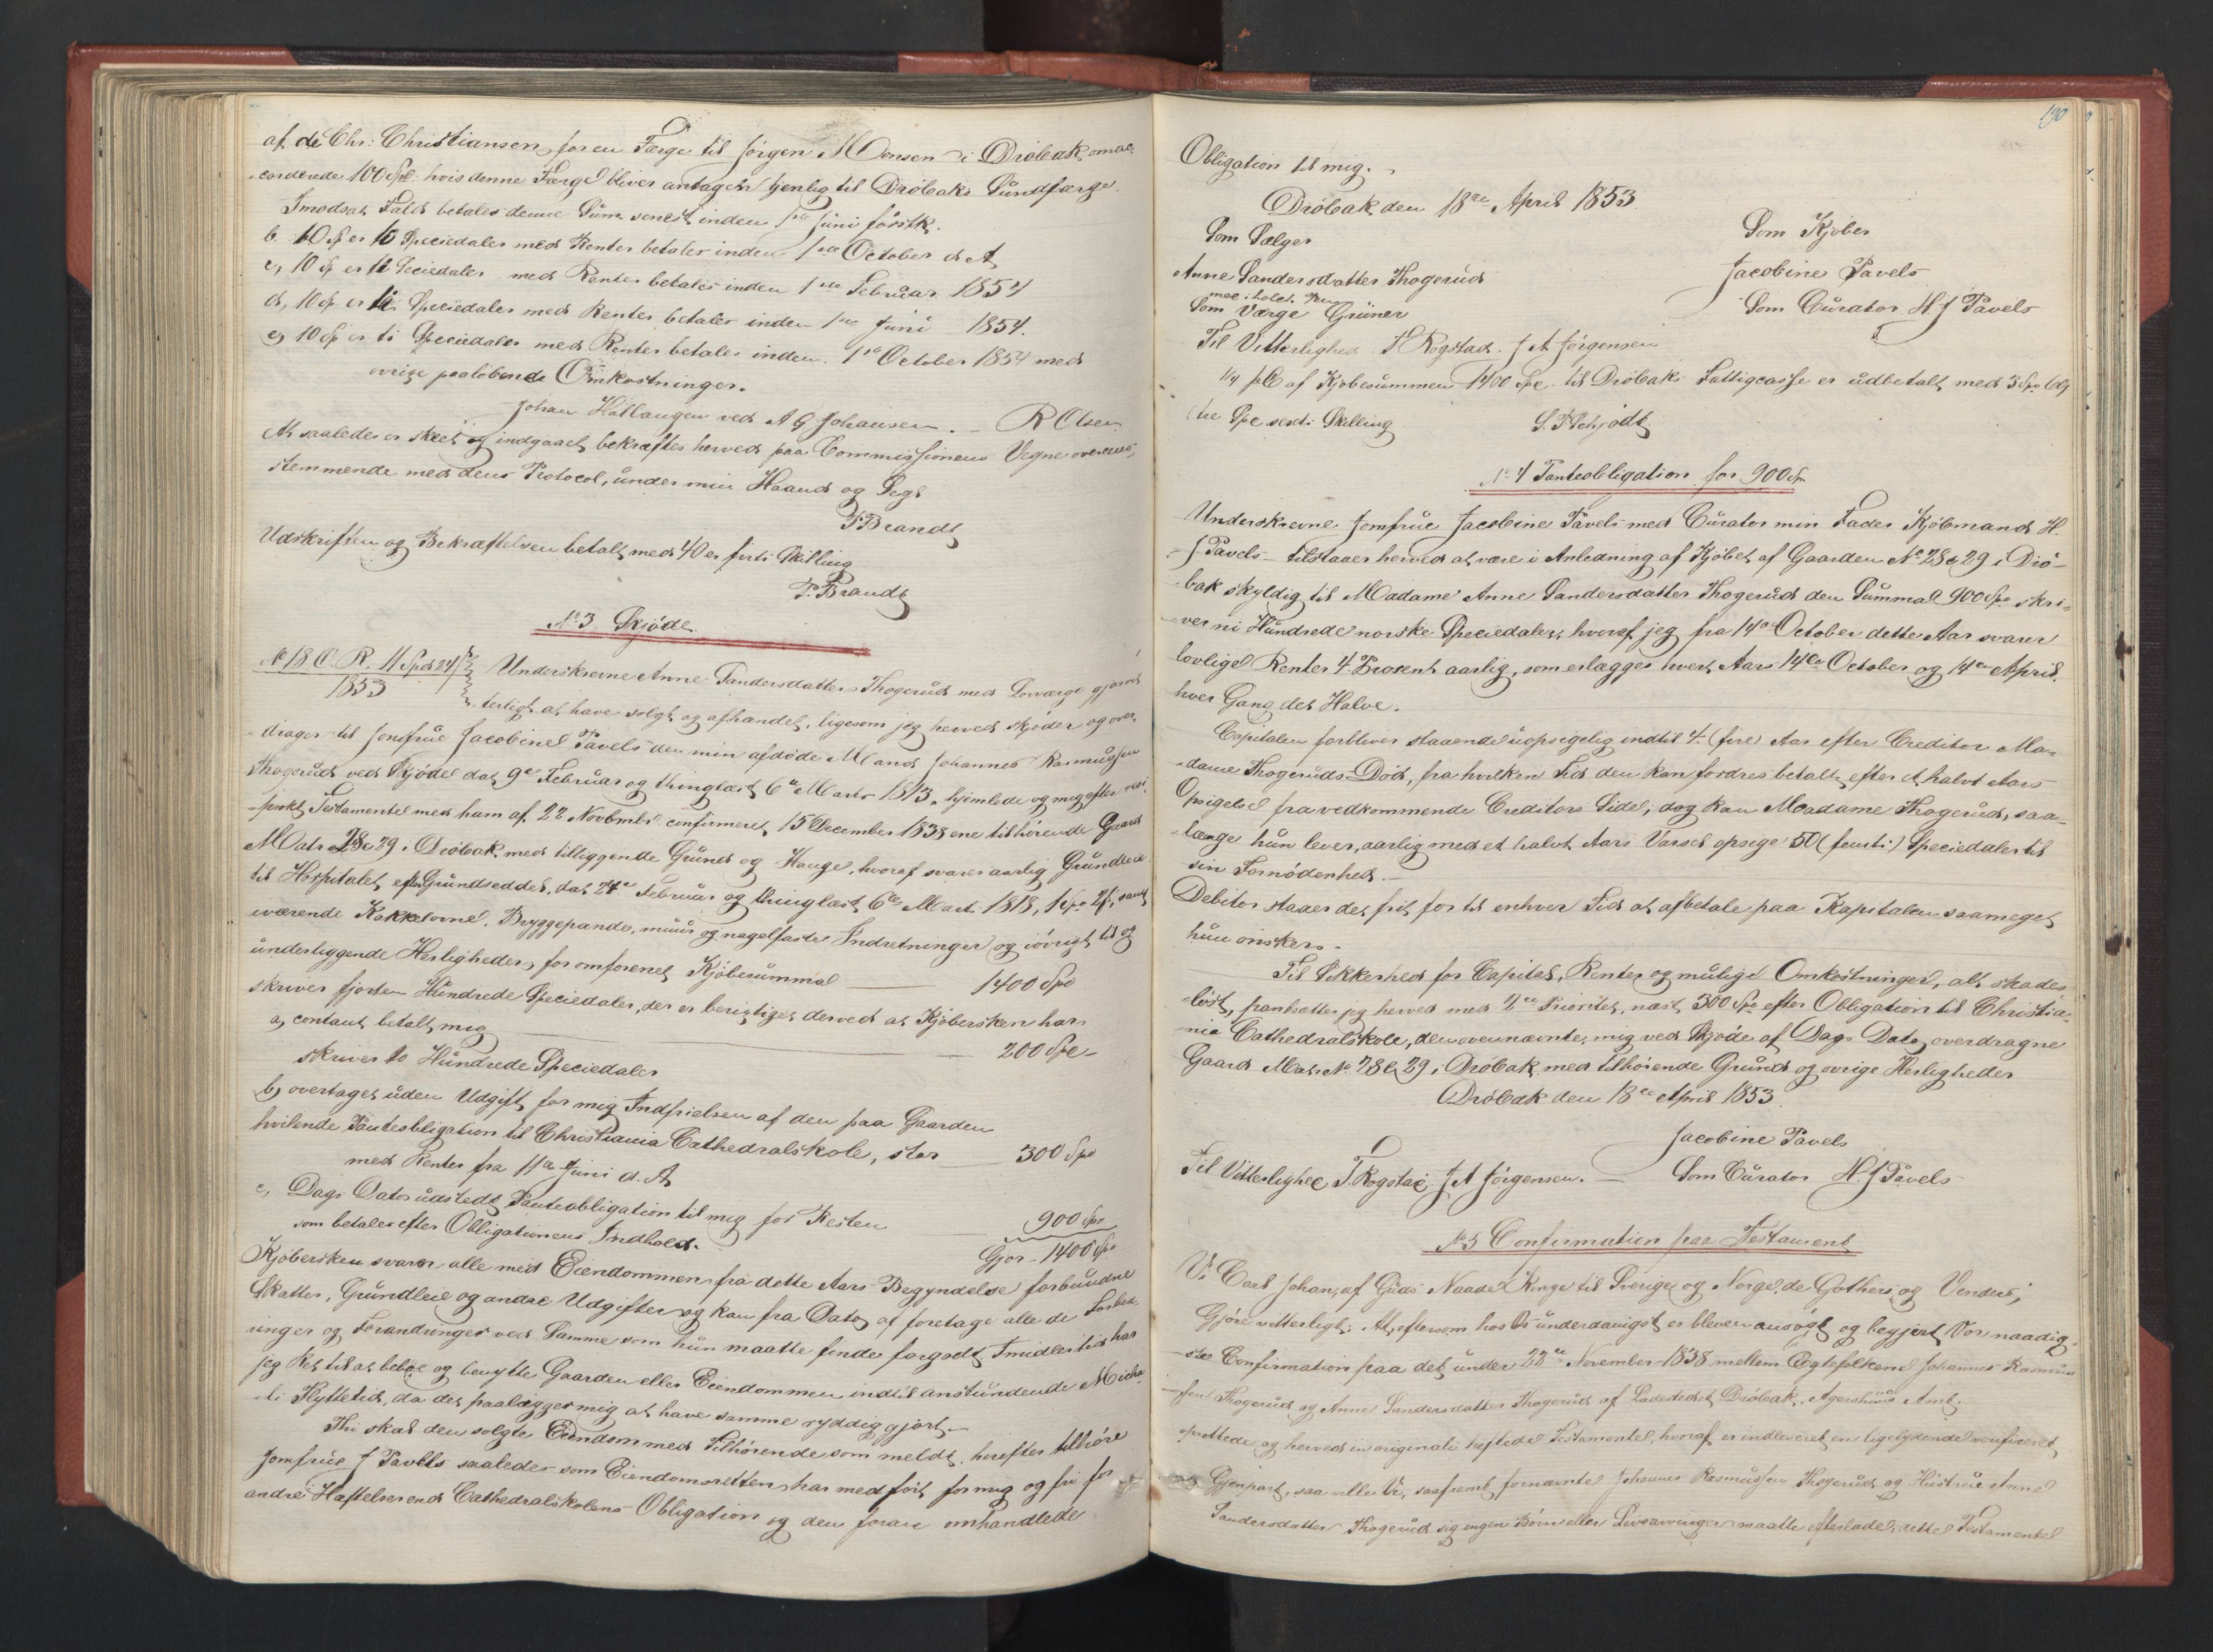 af de Chr: Christiansen, for en Færge til Jørgen Monsen i Drøbak omac-
corderede 100 Spd: hvis denne Færge bliver antagen tjenlig til Drøbaks Sundfærge.
Imodsat Fald betales denne Sum senest inden 1ste Juni førstk.
b. 10 Sp er 10 Speciedaler med Renter betales inden 1ste October d. A
c, 10 Sp er ti Speciedaler med Renter betales inden 1ste Februar 1854
d, 10 Sp er ti Speciedaler med Renter betales inden 1ste Juni 1854.
e, 10 Sp er ti Speciedaler med Renter betales inden 1ste October 1854 med
øvrige paaløbende Omkostninger.
Johan Hallangen ved A G Johansen. – R Olsen
At saaledes er skeet og indgaaet bekræftes herved paa Commissionens Vegne overens-
stemmende med dens Protocol, under min Haand og Segl
P. Brandt
Udskriften og Bekræftelsen betalt med 40 er førti Skilling
P. Brandt
No 3. Skjøde
No 18 C. R. 11 Spd 24 ß
1853
Underskrevne Anne Sandersdatter Skogerud med Lovværge gjør vit-
terligt at have solgt og afhændet, ligesom jeg herved skjøder og over-
drager til Jomfrue Jacobine Pavels den min afdøde Mand Johannes Rasmussen
Skogerud ved Skjøde dat. 9de Februar og thinglæst 6te Marts 1813, hjemlede og mig efter
Testamente med ham af 22 Novbmbr confirmeret 15 December 1838 ene tilhørende Gaard
Matr No 28 & 29 i Drøbak med tilliggende Grund og Hauge, hvoraf svares aarlig Grundleie
til Hospitalet, efter Grundseddel, dat. 24de Februar og thinglæst 6te Marts 1818, 1 Spd samt
iværende Kakkelovne, Bryggepande, muur og nagelfaste Indretninger og iøvrigt til og
underliggende Herligheder, for omforenet Kjøbesumma — 1400 Spd
skriver fjorten Hundrede Speciedaler, der er berigtiget derved at Kjøbersken har
a, contant betalt mig — 200 Spe–
skriver to Hundrede Speciedaler
b, overtaget uden Udgift for mig Indfrielsen af den paa Gaarden
hvilende Panteobligation til Christiania Cathedralskole, stor — 300 Spd
med Renter fra 11te Juni d. A
c, Dags Dato udstedt Panteobligation til mig for Resten — 900 Spd
som betales efter Obligationens Indhold.
Gjør – 1400 Spd
Kjøbersken svarer alle med Eiendommen fra dette Aars Begyndelse forbundne
Skatter, Grundleie og andre Udgifter og kan fra Dato af foretage alle de Forbed-
ringer og Forandringer ved Samme som hun maatte finde forgodt. Imidlertid har
jeg Ret til at beboe og benytte Gaarden eller Eiendommen indtil anstundende Micha-
li Flyttetid, da det paalægges mig at have samme ryddiggjort.–
Thi skal den solgte Eiendom med Tilhørende som meldt, herefter tilhøre
Jomfrue J Pavels saaledes som Eiendomsretten har medført for mig og fri for
andre Hæftelser end Cathedralskolens Obligation og den foran omhandlede
190
Obligation til mig.
Drøbak, den 18de April 1853
Som Sælger
Som Kjøber
Anne Sandersdatter Skogerud
Jacobine Pavels
med iholdt Pen
Som Værge Grüner
Som Curator H. J Pavels
Til Vitterlighed T Rogstad. J A Jørgensen
1/4 pC af Kjøbesummen 1400 Spe. til Drøbaks Fattigcasse er udbetalt med 3 Spe 60 ß
(tre Spe sexti Skilling
S. Schjødt
No 4 Panteobligation for 900 Sp.
Underskrevne Jomfrue Jacobine Pavels med Curator min Fader Kjøbmand H.
J Pavels – tilstaaer herved at være i Anledning af Kjøbet af Gaarden No 28 & 29 i Drø-
bak skyldig til Madame Anne Sandersdatter Skogerud den Summa 900 Spe skri-
ver ni Hundrede norske Speciedaler, hvoraf jeg fra 14de October dette Aar svarer
lovlige Renter 4 Procent aarlig, som erlægges hvert Aars 14de October og 14de April,
hver Gang det Halve.
Capitalen forbliver staaende uopsigelig indtil 4. (fire) Aar efter Creditor Ma-
dame Skogeruds Død, fra hvilken Tid den kan fordres betalt, efter et halvt Aars
Opsigelse fra vedkommende Creditors Side; dog kan Madame Skogerud, saa-
længe hun lever, aarlig med et halvt Aars Varsel opsige 50 (femti) Speciedaler til
sin Fornødenhed.–
Debitor staaer det frit for til enhver Tid at afbetale paa Kapitalen saameget
hun ønsker.–
Til Sikkerhed for Capital, Renter og mulige Omkostninger, alt skades-
løst, pantsætter jeg herved med 2den Prioritet, næst 300 Spe efter Obligation til Christia-
nia Cathedralskole, den ovennævnte, mig ved Skjøde af Dags Dato overdragne
Gaard Matr No 28 & 29 i Drøbak med tilhørende Grund og øvrige Herligheder
Drøbak den 18de April 1853.
Jacobine Pavels
Til Vitterlighed T. Rogstad. J A Jørgensen. – Som Curator H. J Pavels
No 5 Confirmation paa Testament
Vi Carl Johan, af Guds Naade Konge til Sverige og Norge, de Gothers og Venders;
Gjøre vitterligt: At, eftersom hos Os underdanigst er bleven ansøgt og begjert Vor naadig-
ste Confirmation paa det under 22de November 1838 mellem Egtefolkene Johannes Rasmus-
sen Skogerud og Anne Sandersdatter Skogerud af Ladestedet Drøbak, Agershuus Amt
oprettede og herved in originali heftede Testamente, hvoraf er indleveret en ligelydende verificeret
Gjenpart, saa ville Vi, saafremt fornævnte Johannes Rasmussen Skogerud og Hustrue Anne
Sandersdatter Skogerud sig ingen Børn eller Livsarvinger maatte efterlade, dette Testamente